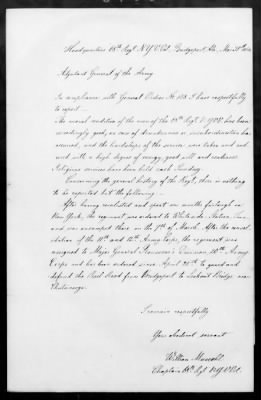 Headquarters 68th Regt N.Y.V. Vol. Bridgeport Ala.
Adjutant General of the Army
In compliance with General Orders No 158 I have respectfully
to report
The moral condition of the men of the 68th Regt N.Y.V.V. has been
exceedingly good, no case of drunkenness or insubordination has
occurred, and the hardships of the service were taken and end-
ured with a high degree of energy, good will and readiness.
Religious services have been held each Sunday.
Concerning the general history of the Regt, there is nothing
to be reported but the following:
After having reenlisted and spent six months furlough in
New York, the regiment was ordered to Whiteside Station Tenn.
and was encamped there on the 7th of March. After the consol-
idation of the 11th and 12th Army Corps, the regiment was
assigned to Major General Division, 20th Army
Corps and has been ordered since April 26th to guard and
defend the Rail Road from Bridgeport to Bridge near
Chattanooga.
I remain respectfully
Your obedient servant
William
Chaplain 68th Regt N.Y.V. Vol.